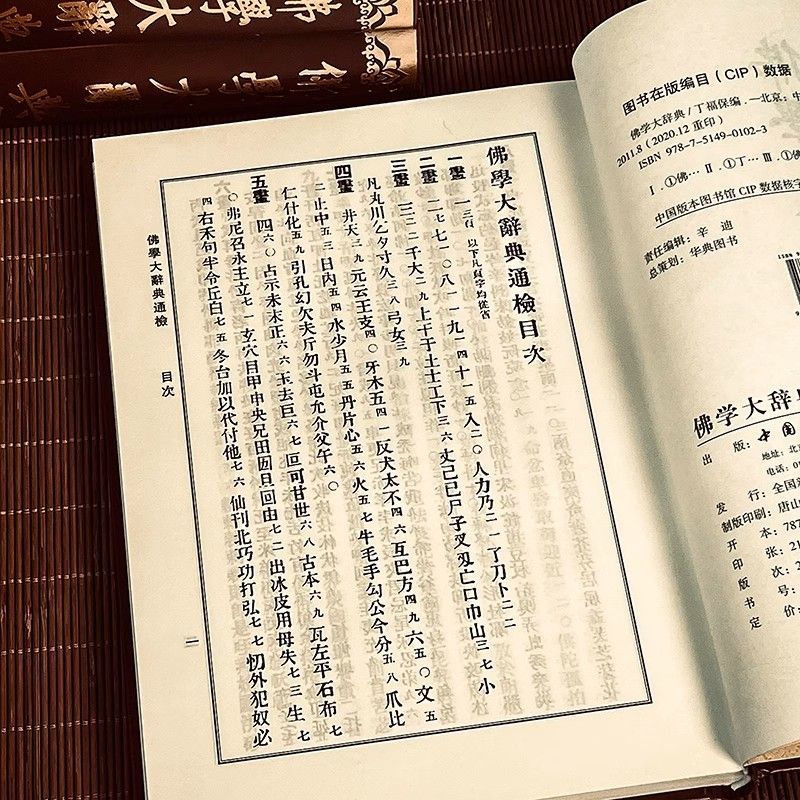 佛學大辭典通檢目次
一畫 一 三頁 以下凡頁字均從省
二畫 二七七一〇八一一九一四十一五入二〇人力乃二一了刀卜二二
三畫 三三二千大二九上干于土士工下三六丈己已尸子叉亡口巾山三七小
凡丸川乞夕寸久三八弓女三九
四畫 井天三九元云王支四〇牙木五四一反犬太不四六互巴方四九六五〇文五
二止中五三日內五四水少月五五丹片心五六火五七牛毛手勾公今分五八爪比
仁什化五九引孔幻欠夫斤勿斗屯允介爻午六〇
五畫 四六〇占示未末正六六玉去巨六七叵可甘世六八古本六九瓦左平石布七
〇弗尼召永主立七一玄穴目甲申央兄田旦回由七二出冰皮用母失七三生七
四右禾句半令丘白七五冬台加以代付他七六仙刊北巧功打弘七七外犯奴必
佛學大辭典通檢 目次
一
图书在版编目（CIP）数据
佛学大辞典/丁福保编.—北京：中
2011.8（2020.12重印）
ISBN 978-7-5149-0102-3
Ⅰ.①佛… Ⅱ.①丁… Ⅲ.①佛
中国版本图书馆CIP数据核字
责任编辑：辛迪
总策划：华典图书
佛学大辞典
出版：中国
地址：北京
电话：
发行：全国
制版印刷：唐山
开本：787
印张：21
版次：2
书号：
定价：
佛學大辭
佛學大